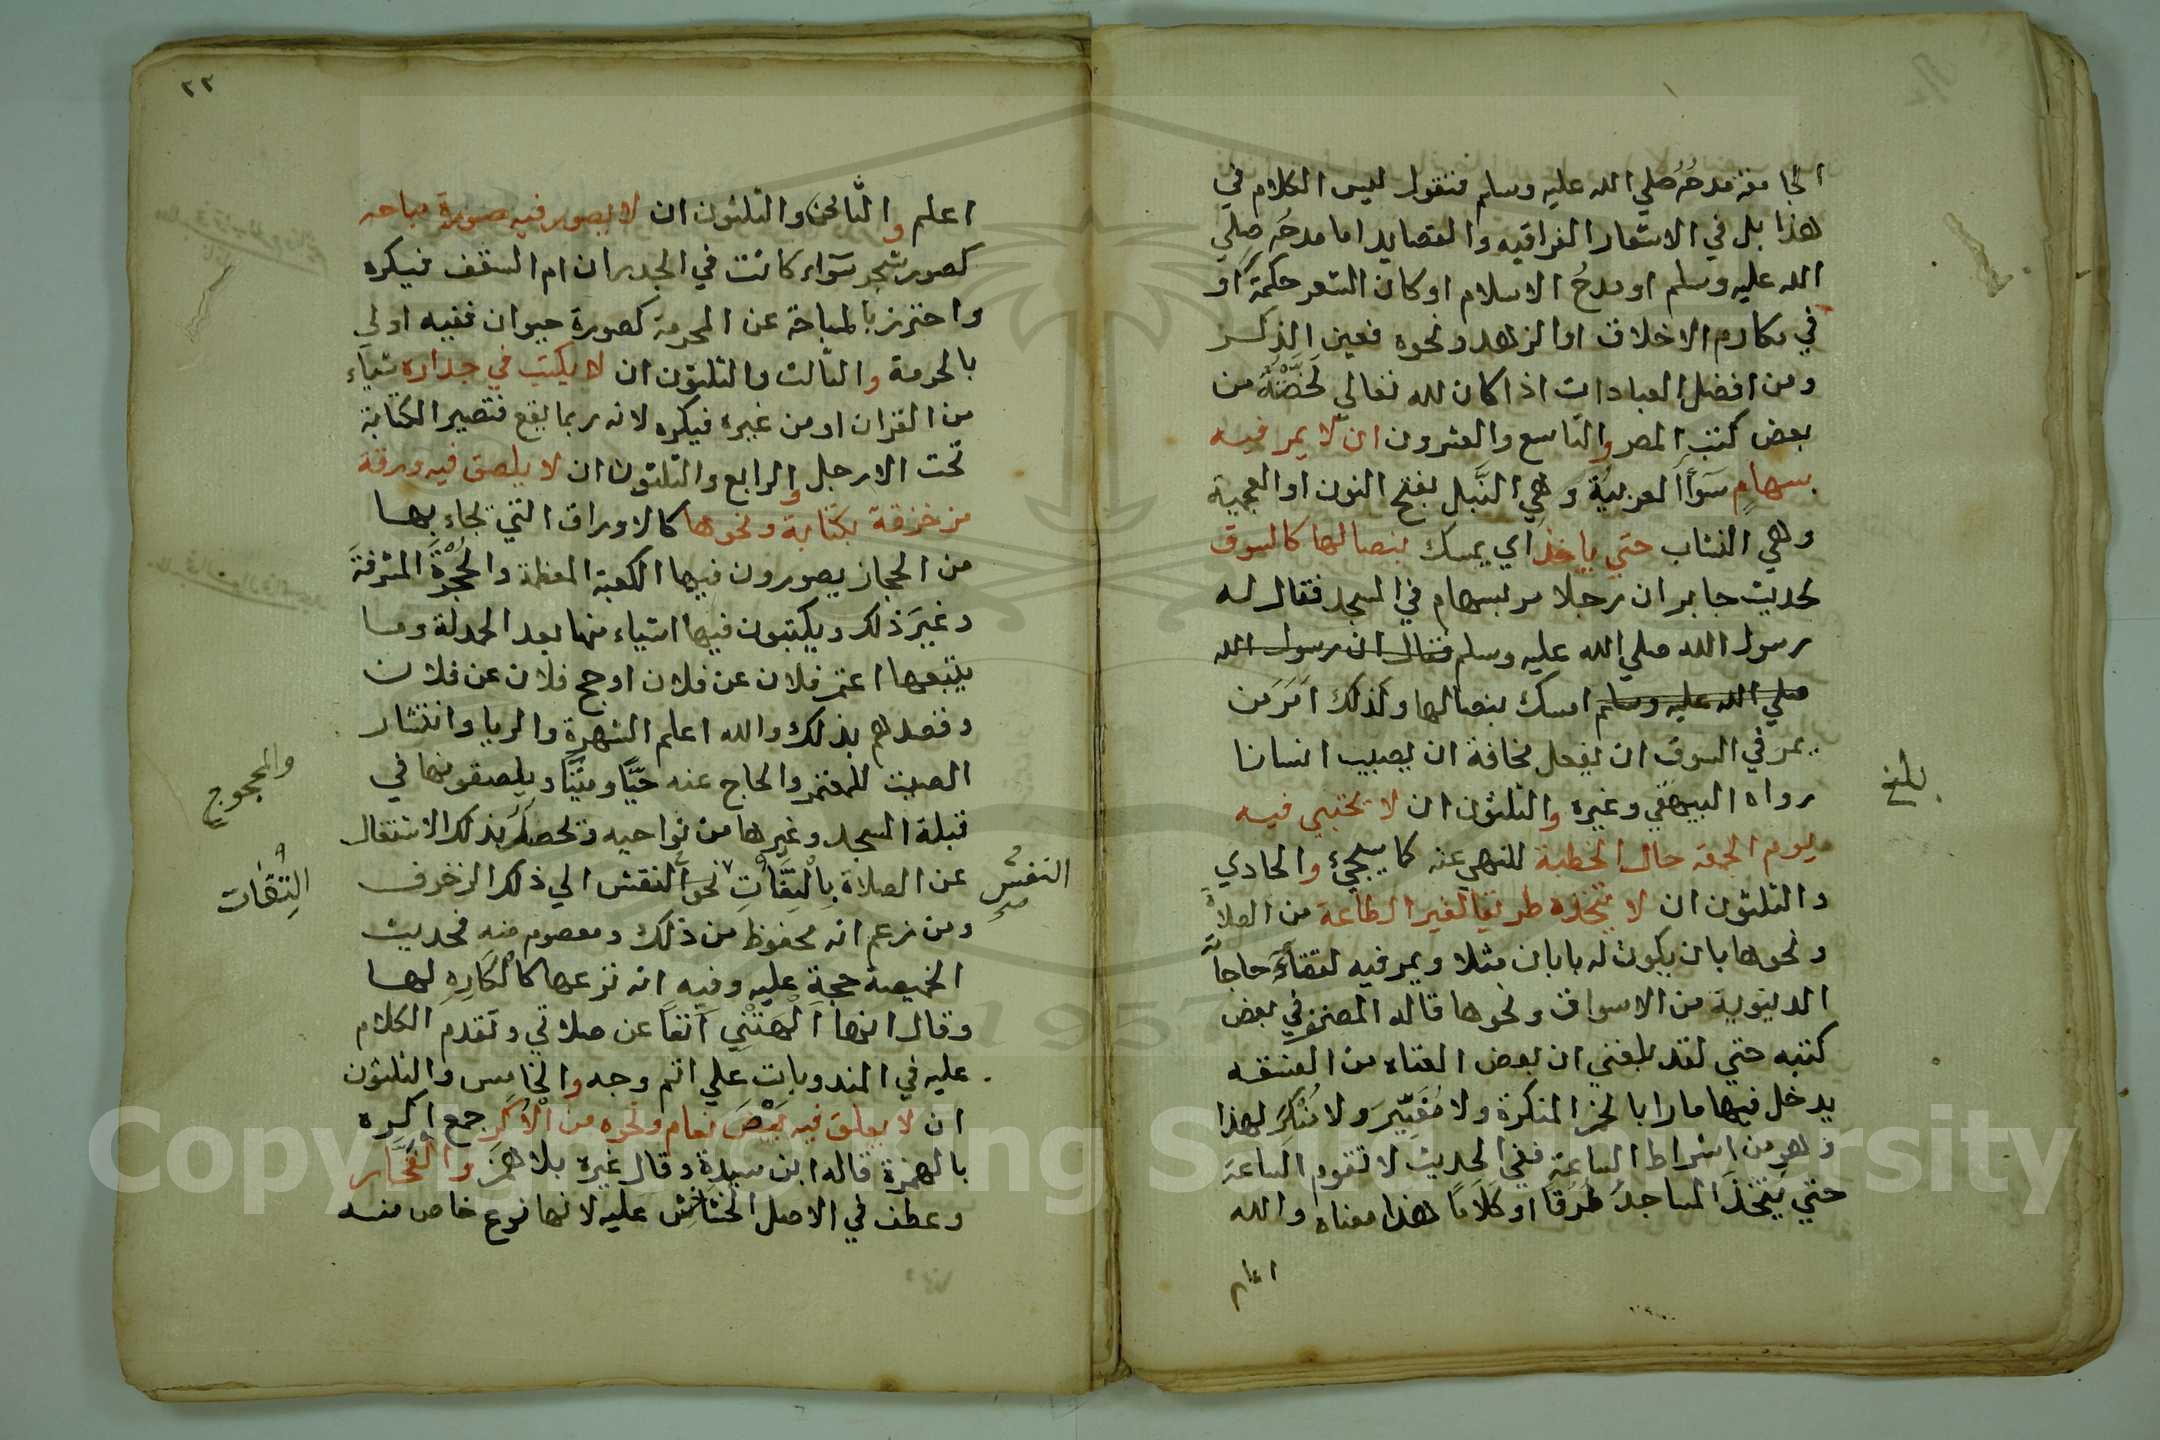 الجامعة مدحُهُ صلي الله عليه وسلم فنقول ليس الكلام في
هذا بل في الاشعار الغراقيه والقصايد اما مدحه صلي
الله عليه وسلم او مدحُ الاسلام او كان الشعر حكمةً او
في مكارم الاخلاق او الزهد ونحوه فعين الذكر
ومن افضل العبادات اذا كان لله تعالي لخصْتُهُ من
بعض كتب المص والتاسع والعشرون ان لا يمر فيه
بسهامٍ سَوَآ العربية وهي النَّبل بفتح النون او العجمية
وهي النشاب حتي ياخذ اي يمسك بنصالها كالسوق
لحديث جابر ان رجلا مر بسهام في المسجد فقال له
رسول الله صلي الله عليه وسلم فقال ان رسول الله
صلي الله عليه وسلم امسك بنصالها وكذلك امَرَ من
يمر في السوق ان يفعل مخافة ان يصيب انسانا
رواه البيهقي وغيره والثلثون ان لا يحتبي فيه
يوم الجمعة حال الخطبة للنهي عنه كما سيجئ والحادي
والثلثون ان لا يتخذه طريقا لغير الطاعة من الصلاة
ونحوها بان يكون له بابان مثلا ويمر فيه لقضآء حاجاته
الدنيوية من الاسواق ونحوها قاله المصنف في بعض
كتبه حتي لقد بلغني ان بعض العتاه من الفسقه
يدخل فيها مارا با لخمر المنكرة ولا مُغَيِّر ولا مُنْكِرَ لهذا
وهو من اشراط الساعة ففي الحديث لا تقوم الساعة
حتي يَتَّخذَ المساجدُ طُرُقًا او كلامًا هذا معناه والله
اعلم
بلغ
٢٢
اعلم والثانى والثلثون ان لا يصور فيه صورة مباحه
كصور شجر سَوَاء كانت في الجدران ام السقف فيكره
واحترز بالمباحة عن المحرمة كصورة حيوان ففيه اولي
بالحرمة والثالث والثلثون ان لا يكتب في جداره شياء
من القران او من غيره فيكره لانه ربما يقع فتصير الكتابة
تحت الارجل والرابع والثلثون ان لا يلصق فيه ورقة
مزخرفة بكتابة ونحوها كالاوراق التي تجاء بها
من الحجاز يصورون فيها الكعبة المعظمة والحُجْرَةَ المشرفةَ
وغيرَ ذلك ويكتبون فيها اشياء منها بعد الحمدلة وما
يتبعها اعتمر فلان عن فلان او حج فلان عن فلان
وقصدهم بذلك والله اعلم الشهرة والريا وانتشار
الصيت للمعتمر والحاج عنه حَيًّا وميّتًا ويلصقونها في
قبلة المسجد وغيرها من نواحيه وتحصل بذلك الاشتغال
عن الصلاة بِالْتِقَاتِ نحو النقش الي ذلك الزخرف
ومن زعم انه محفوظ من ذلك ومعصوم منه فحديث
الخميصة حجة عليه وفيه انه نزعها كالكَارِهِ لها
وقال انها اَلْهَتْنِي آنفًا عن صلاتي وتقدم الكلام
عليه في المندوبات علي اتم وجه والخامس والثلثون
ان لا يعلق فيه بَيْضَ نعام ونحوه من الاُكَرِ جمع اكره
بالهمزة قاله ابن سيدةِ وقال غيره بلا همَز والفَخَّار
وعطف في الاصل الخشاش عليه لانها نوع خاص منه
والمحجوج
النفس صح